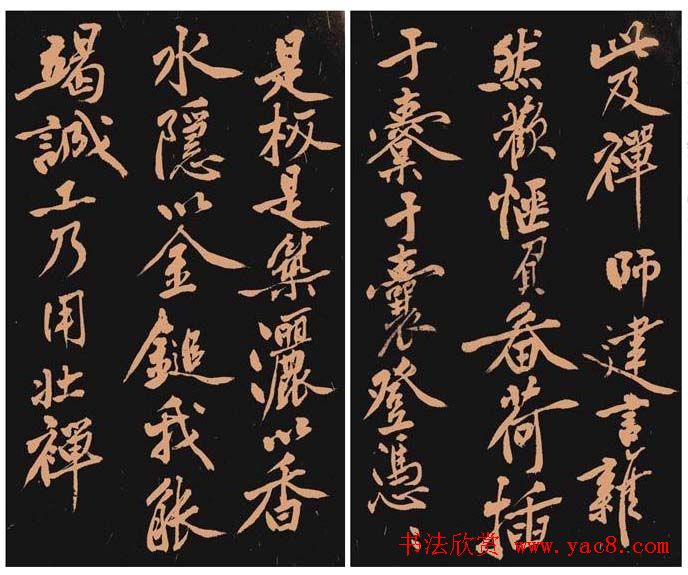 此及禪師建言雜
然歡愜負畚荷插
于橐于囊登憑
是板是築灑以香
水隱以金鎚我能
竭誠工乃用壯禪
书法欣赏 www.yac8.com